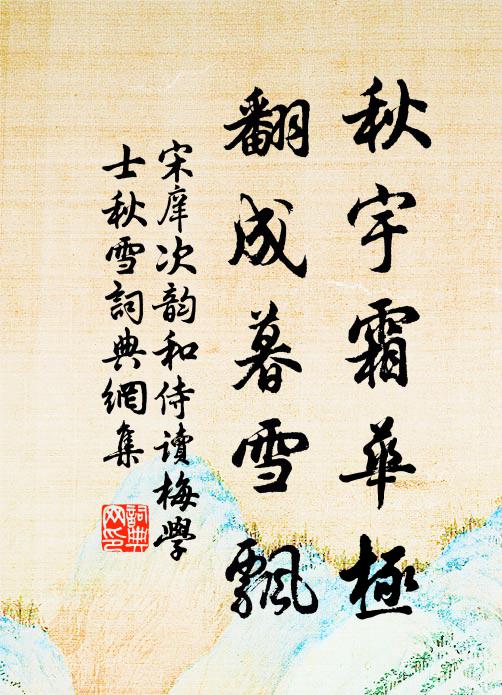 秋宇霜華極
翻成暮雪飄
宋庠次韵和侍讀梅學
士秋雪詞典網集
詞典網印